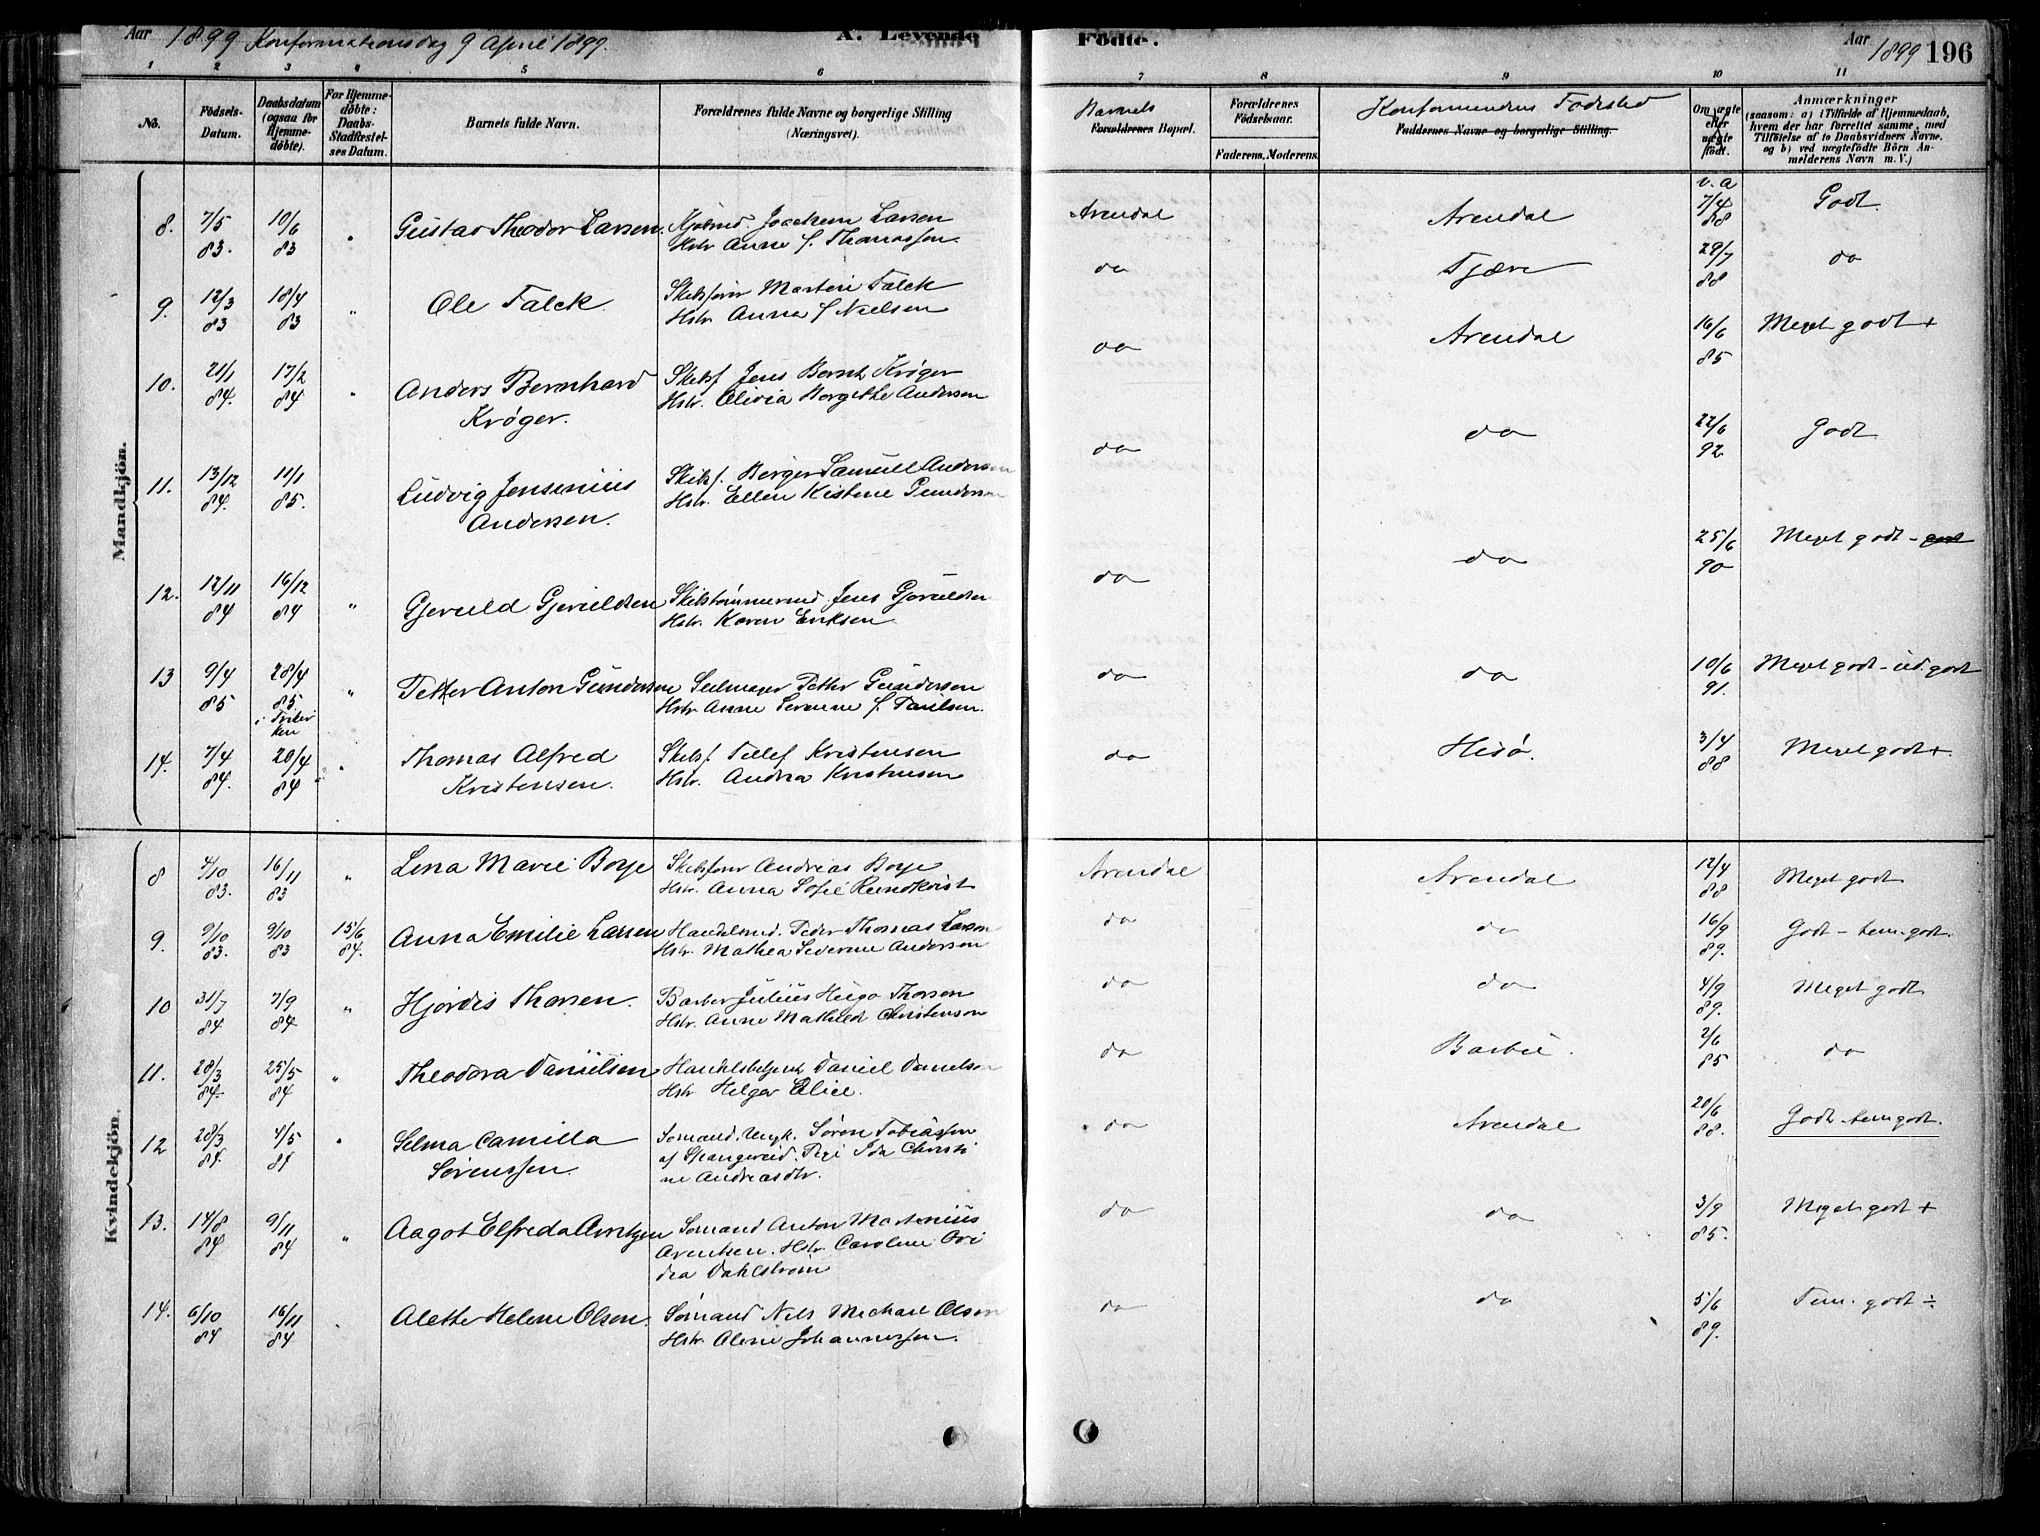 Aar 1899 Konfirmationsdag 9 April 1899. A. Levende Födte. Aar 1899 196
1 2 3 4 5 6 7 8 9 10 11
No. Födsels-Datum. Daabsdatum (ogsaa for Hjemme-döbte). For Hjemme-döbte: Daabs-Stadfæstel-ses Datum. Barnets fulde Navn. Forældrenes fulde Navne og borgerlige Stilling (Næringsvei). Barnets Forældrenes Bopæl. Forældrenes Födselsaar. Faderens. Moderens. Konfirmandens Fødested Faddernes Navne og borgerlige Stilling. Om ægte eller uægte födt. Anmærkninger (saasom: a) i Tilfælde af Hjemmedaab, hvem der har forrettet samme, med Tilföielse af to Daabsvidners Navne. og b) ved uægtefödte Börn An-melderens Navn m. V.)
Mandkjön.
v. a
8. 7/5 83. 10/6 83 " Gustav Theodor Larsen. Joachem Larsen Arendal Arendal 7/4 88 Godt
Hstr Anne f. Thomassen.
9. 12/3 83 18/4 83 " Ole Falck. Skibsfører Martin Falck do Tjøre 29/7 88 do
Hstr. Anna f Nielsen
10. 21/1 84. 17/2 84 " Anders Bernhard Skibsf Jens Bernh Krøger do Arendal 16/6 85 Meget godt +
Krøger. Hstr. Olivia Borgethe Andersen
11. 13/12 84. 11/1 85. Ludvig Jensenius Skibsf. Berger Samuel Andersen do do 22/6 92 Godt
Andersen. Hstr. Ellen Kistine Gundersen
12. 12/11 84 16/12 84 " Gjeruld Gjeruldsen Skibstømmermd Jens Gjeruldsen do do 25/6 90 Meget godt - godt
Hstr. Karen Eriksen.
13 9/4 85 28/4 85. " Petter Anton Gundersen Seilmager Petter Gundersen do do 10/6 91. Meget godt - ud. godt
i Frikirken Hstr. Anne Severine f. Paulsen.
14. 7/4 84. 20/4 84 " Thomas Alfred Skibsf. Tellef Kristensen do Hisø. 3/4 88 Meget godt +
Kristensen. Hstr. Andrea Kristensen
Kvindekjön.
8 4/10 83. 16/11 83 " Lena Marie Boye Skibsfører Andreas Boye Arendal Arendal 12/4 88 Meget godt
Hstr. Anna Sofie Rundkvist
9. 9/10 83. 9/10 83 15/6 84. Anna Emilie Larsen Handelsmd. Peder Thomas Larsen do do 16/9 89. Godt - tem. godt.
Hstr. Mathea Severine Andersen
10 31/7 84 7/9 84 " Hjørdis Thorsen. Barber Julius Hugo Thorsen do do 4/9 89. Meget godt
Hstr. Anne Mathilde Christensen
11. 28/3 84. 25/5 84 " Theodora Danielsen Handelsbetjent Daniel Danielsen do Barbu. 2/6 85 do
Hstr Helga Elise.
12 28/3 84. 4/5 84 " Selma Camilla Sømand. Ungk. Søren Tobiassen do Arendal 20/6 88. Godt - tem godt.
Sørenssen af Spangereid. Pige Ida Christi
ne Andreasdtr.
13. 14/8 84 9/11 84 " Aagot Elfreda Arntzen Sømand Anton Martinius do do 3/9 85. Meget godt +
Arentsen. Hstr. Caroline Ovi
dia Dahlstrøm
14. 6/10 84 16/11 84 Alette Helene Olsen. Sømand Nils Michael Olsen do do 5/6 89. Tem. godt ÷
Hstr. Oline Johannessen.